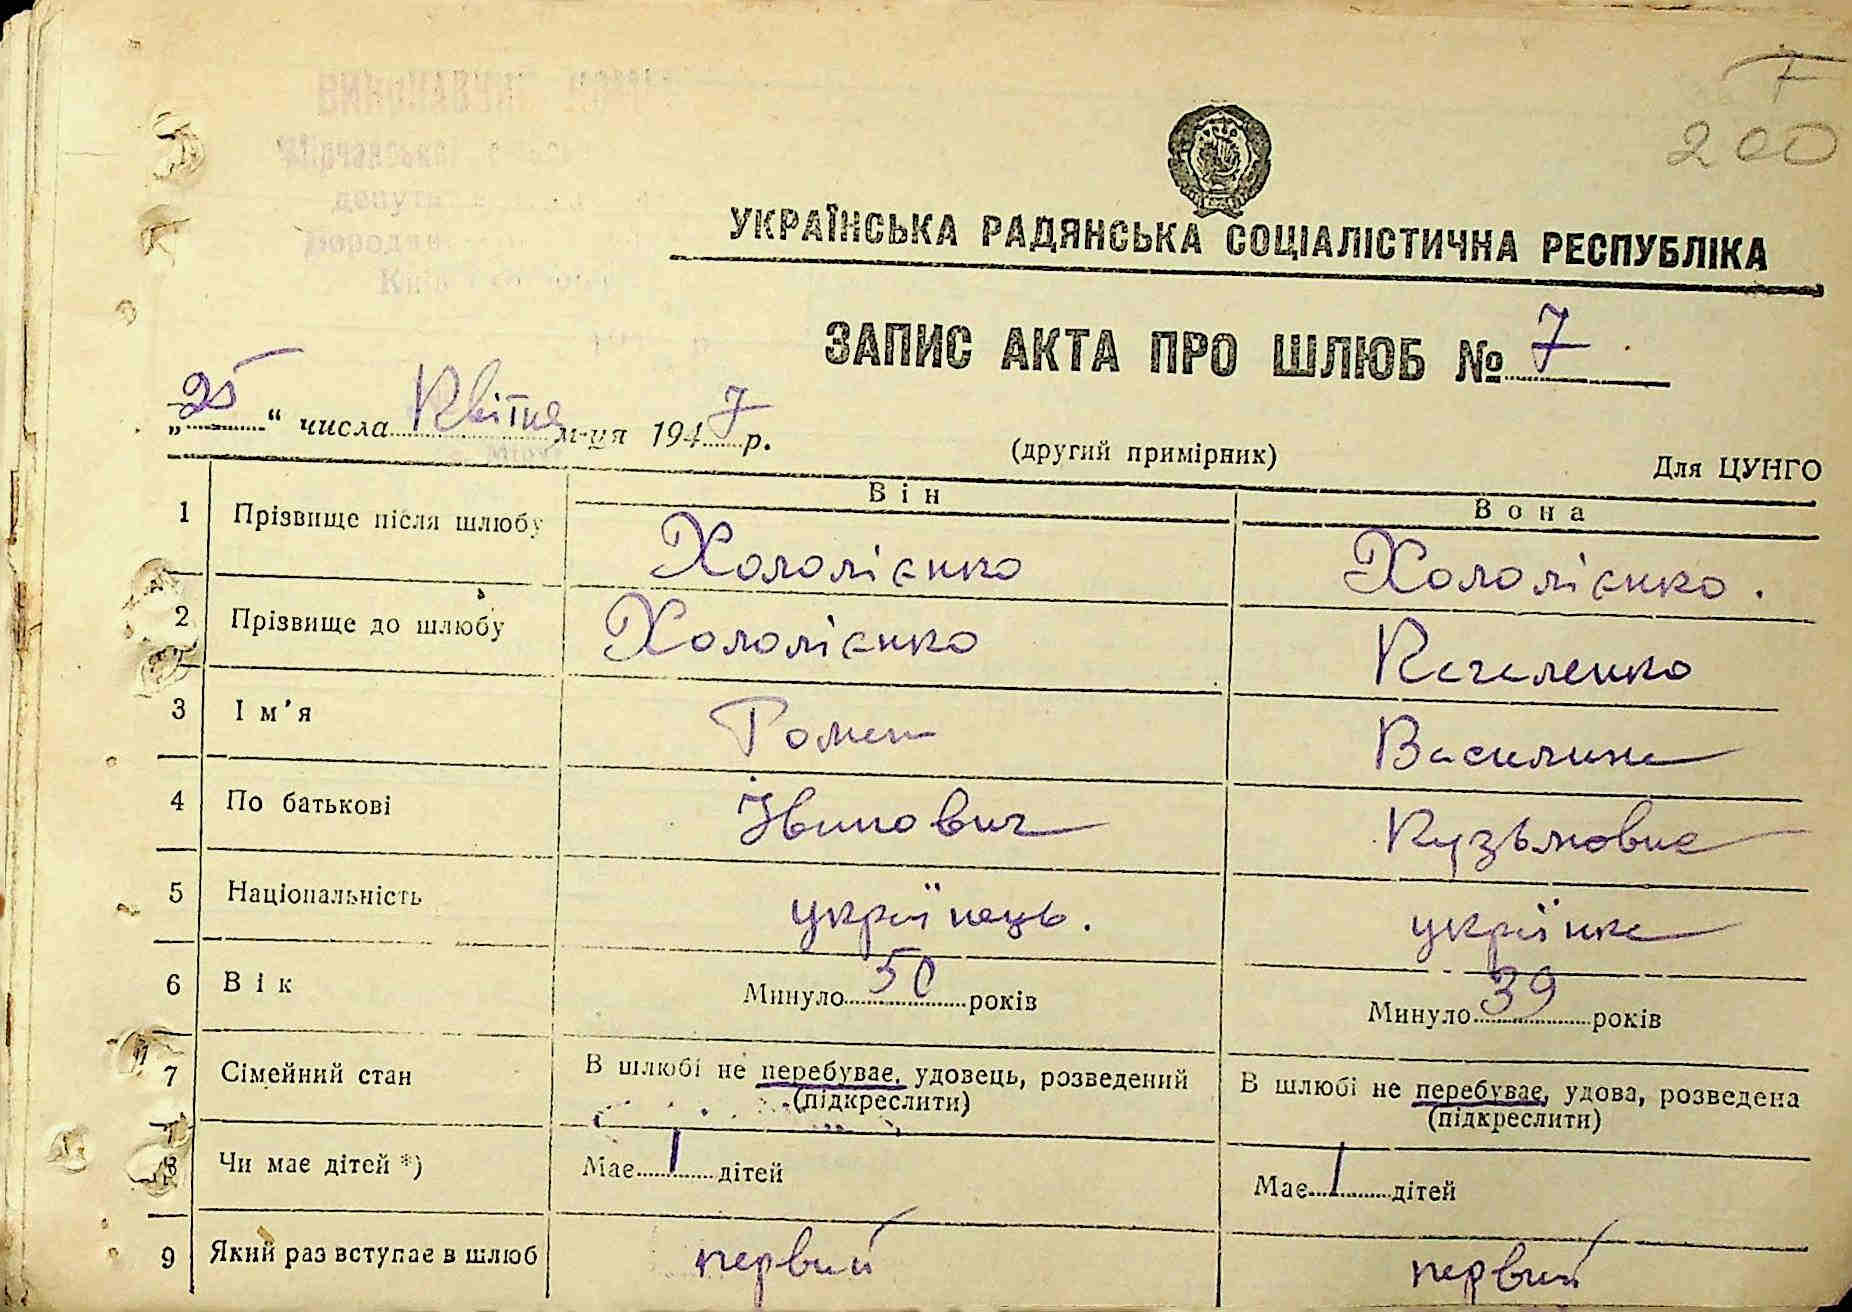 7
200
УКРАЇНСЬКА РАДЯНСЬКА СОЦІАЛІСТИЧНА РЕСПУБЛІКА
ЗАПИС АКТА ПРО ШЛЮБ № 7
„25“ числа Квітня м-ця 1947 р.
(другий примірник)
Для ЦУНГО
Він Вона
1 Прізвище після шлюбу Хололієнко Хололієнко.
2 Прізвище до шлюбу Хололієнко
3 Ім'я Роман Василина
4 По батькові Іванович Кузьмовна
5 Національність українець. українка
6 Вік Минуло 50 років Минуло 39 років
7 Сімейний стан В шлюбі не перебуває, удовець, розведений В шлюбі не перебуває, удова, розведена
(підкреслити) (підкреслити)
8 Чи має дітей *) Має 1 дітей Має 1 дітей
9 Який раз вступає в шлюб первий первий